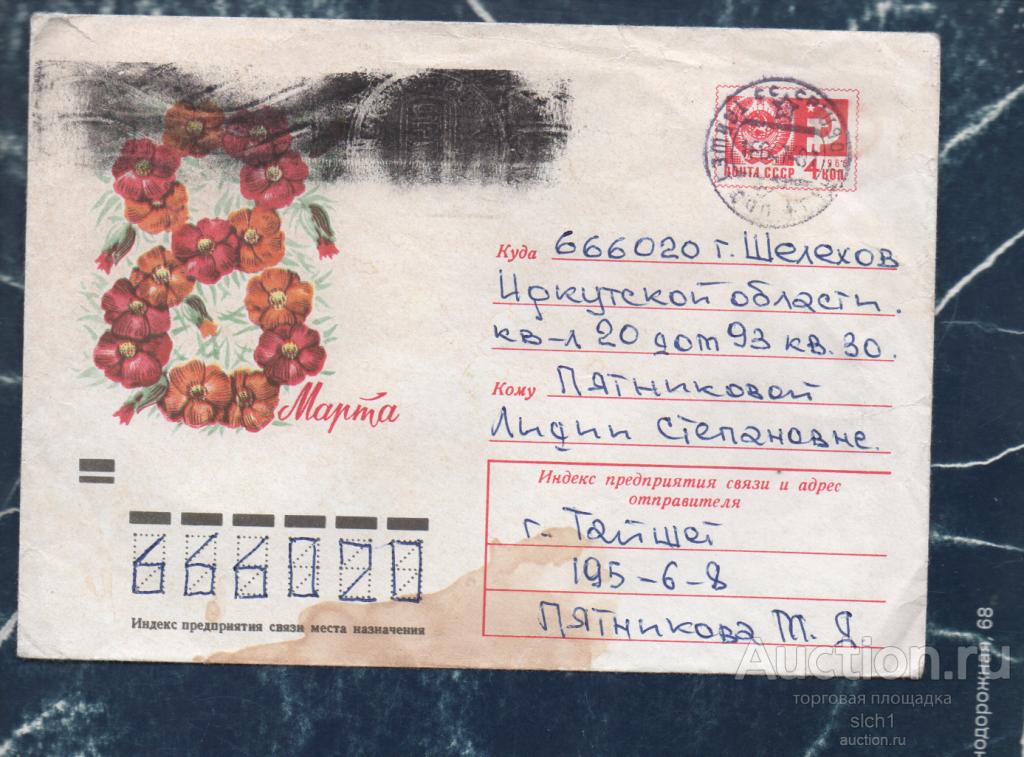 ПОЧТА СССР 4 КОП.
Куда 666020 г. Шелехов
Иркутской области.
кв-л 20 дом 93 кв. 30.
Кому Пятниковой
Лидии Степановне.
Марта
Индекс предприятия связи и адрес
отправителя
г. Тайшет
195-6-8
Пятникова М. Д
666020
Индекс предприятия связи места назначения
Auction.ru
торговая площадка
slch1
auction.ru
нодорожная, 68